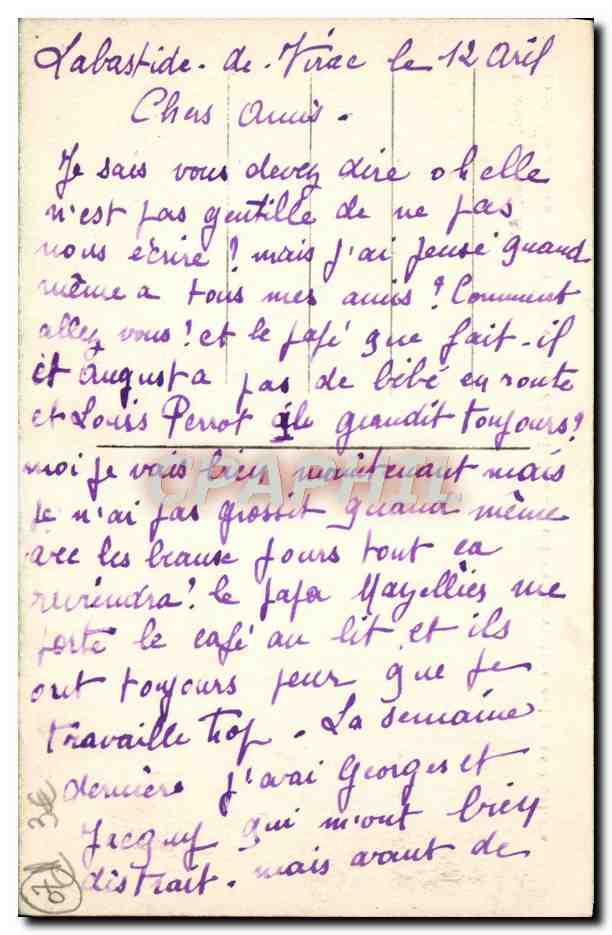 Labastide-de-Virac le 12 Avril
Chers Amis.
Je sais vous devez dire oh elle
n'est pas gentille de ne pas
nous écrire! mais j'ai pensé quand
même a tous mes amis? Comment
allez vous! et le papé que fait-il
et Augusta pas de bébé en route
et Louis Perrot il grandit toujours?
moi je vais bien maintenant mais
je n'ai pas grossit quand même
avec les beaux jours tout ca
reviendra! le papa Mazellier me
porte le café au lit et ils
ont toujours peur que je
travaille trop. La semaine
dernière j'avai Georges et
Jacquy qui m'ont bien
distrait. mais avant de
CPAPHIL
3€
07